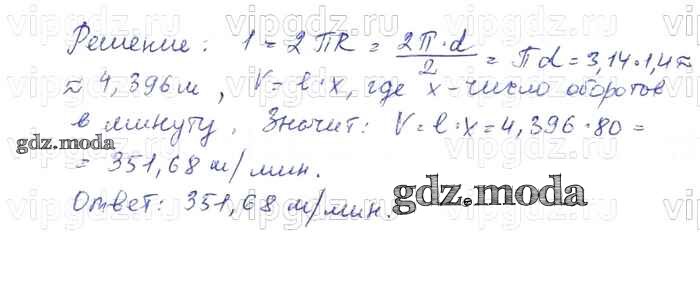 vipgdz.ru vipgdz.ru vipgdz.ru vipgdz.ru
Решение: l = 2πR = \frac{2π·d}{2} = πd = 3,14·1,4 ≈
≈ 4,396 м, V = l·x, где x - число оборотов
в минуту. Значит: V = l·x = 4,396·80 =
gdz.moda
= 351,68 м/мин.
Ответ: 351,68 м/мин.
gdz.moda
vipgdz.ru vipgdz.ru vipgdz.ru vipgdz.ru